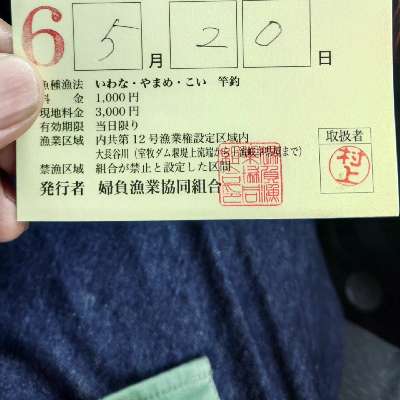 6 5 月 20 日
魚種漁法 いわな・やまめ・こい 竿釣
料金 1,000円
現地料金 3,000円
有効期限 当日限り
漁業区域 内共第12号漁業権設定区域内
大長谷川(室牧ダム堰堤上流端から上流岐阜県境まで)
禁漁区域 組合が禁止と設定した区間
発行者 婦負漁業協同組合
取扱者
村上